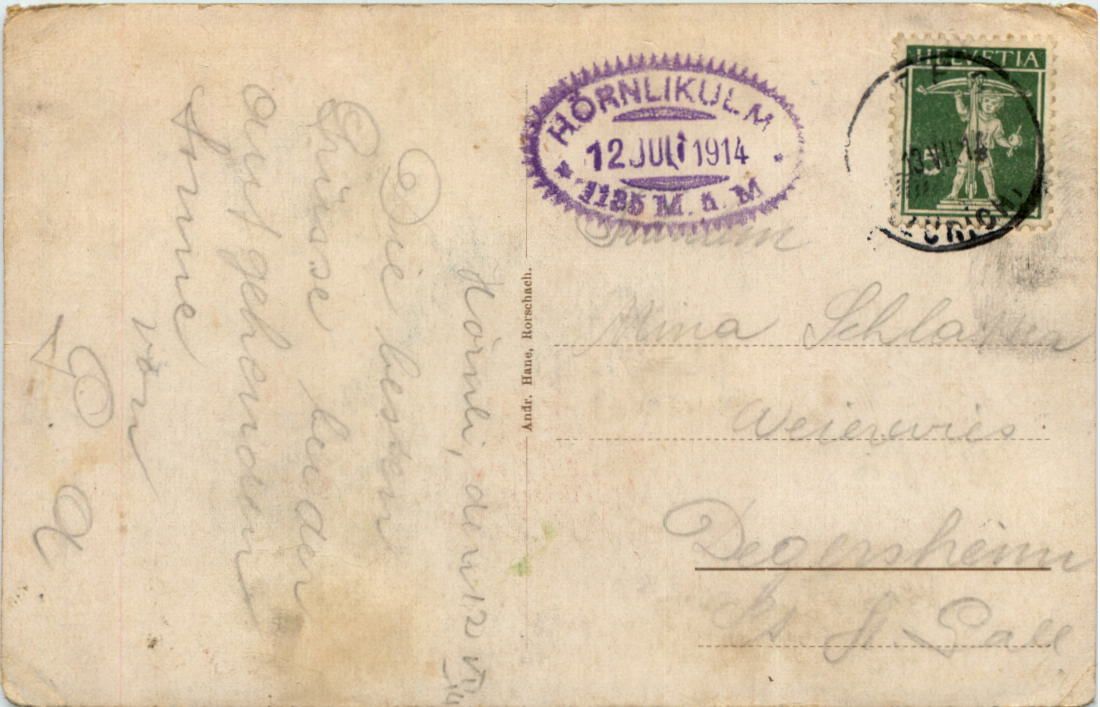 HÖRNLIKULM
12 JULI 1914
1135 M. ü. M
HELVETIA
13.VII.14
ZÜRICH
Andr. Hane, Rorschach.
Mina
Weierwies
Degersheim
Kt. St. Gall
Hörnli, den 12 VII 14
Die besten
Grüsse bei der
aufgehenden
Sonne
von